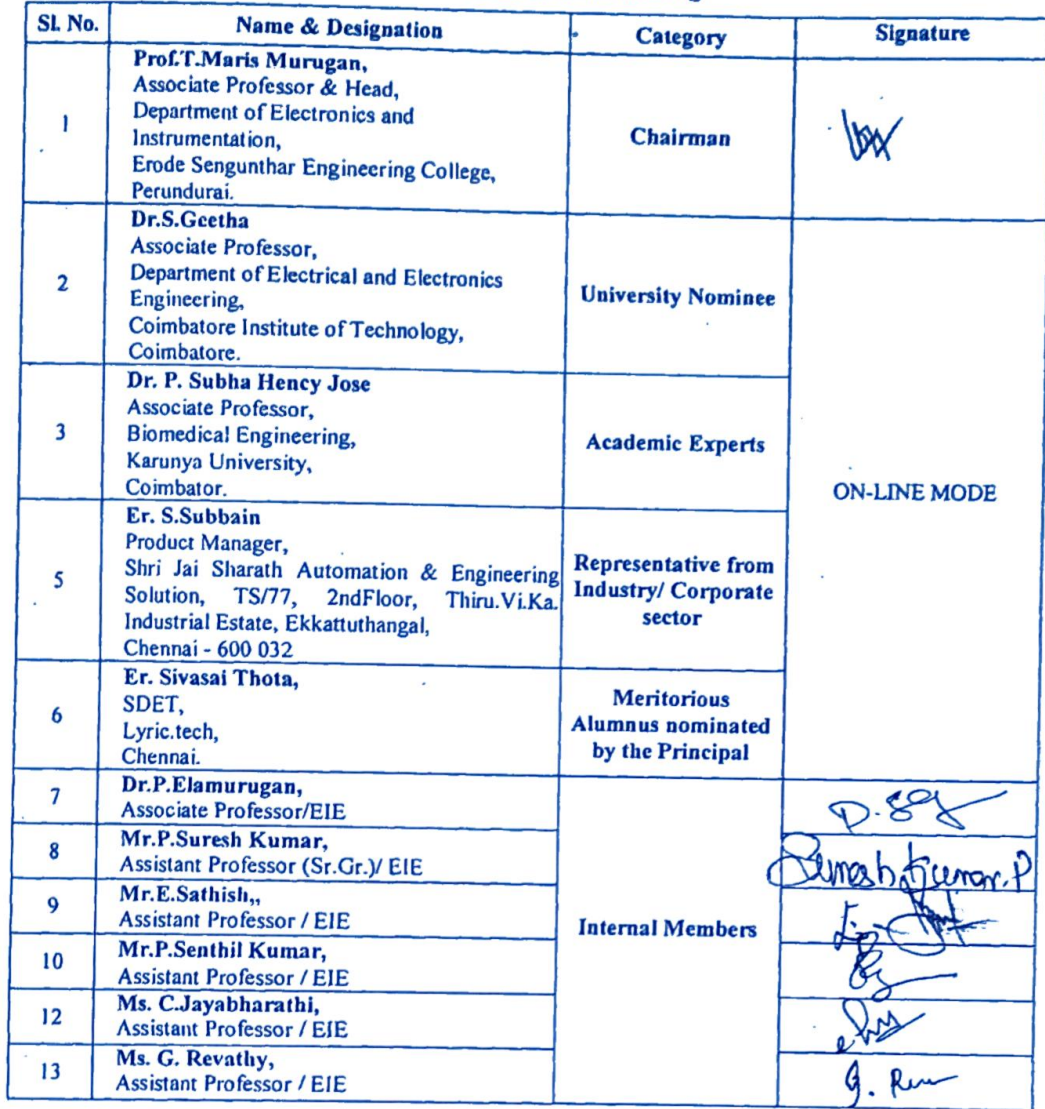 Sl. No. Name & Designation Category Signature
1
Prof.T.Maris Murugan,
Associate Professor & Head,
Department of Electronics and
Instrumentation,
Erode Sengunthar Engineering College,
Perundurai.
Chairman
2
Dr.S.Geetha
Associate Professor,
Department of Electrical and Electronics
Engineering,
Coimbatore Institute of Technology,
Coimbatore.
University Nominee
3
Dr. P. Subha Hency Jose
Associate Professor,
Biomedical Engineering,
Karunya University,
Coimbator.
Academic Experts
ON-LINE MODE
5
Er. S.Subbain
Product Manager,
Shri Jai Sharath Automation & Engineering
Solution, TS/77, 2ndFloor, Thiru.Vi.Ka.
Industrial Estate, Ekkattuthangal,
Chennai - 600 032
Representative from
Industry/ Corporate
sector
6
Er. Sivasai Thota,
SDET,
Lyric.tech,
Chennai.
Meritorious
Alumnus nominated
by the Principal
7
Dr.P.Elamurugan,
Associate Professor/EIE
8
Mr.P.Suresh Kumar,
Assistant Professor (Sr.Gr.)/ EIE
Suresh Kumar.P
9
Mr.E.Sathish,,
Assistant Professor / EIE
Internal Members
10
Mr.P.Senthil Kumar,
Assistant Professor / EIE
12
Ms. C.Jayabharathi,
Assistant Professor / EIE
13
Ms. G. Revathy,
Assistant Professor / EIE